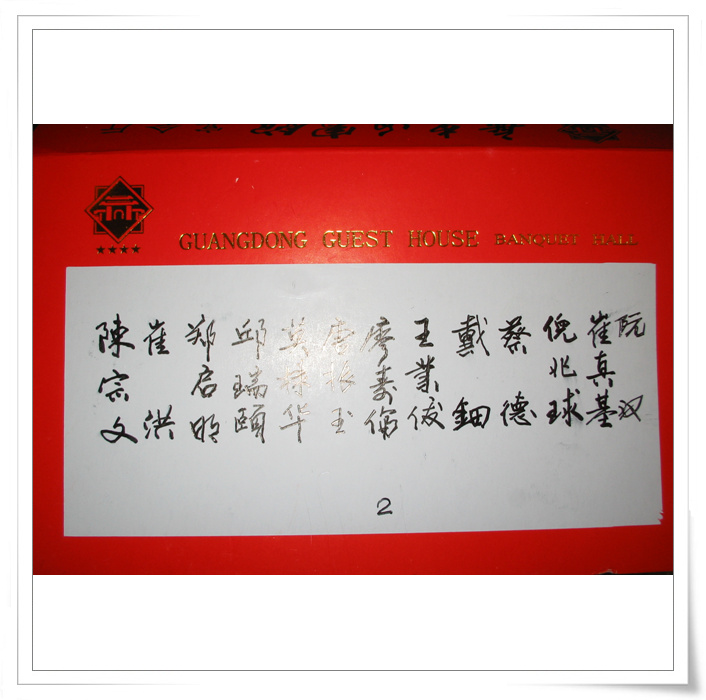 GUANGDONG GUEST HOUSE BANQUET HALL
阮汉
崔真基
倪兆球
蔡德
戴鈿
王業俊
廖壽
唐振玉
莫林华
邱瑞頤
郑启明
崔洪
陳宗文
2